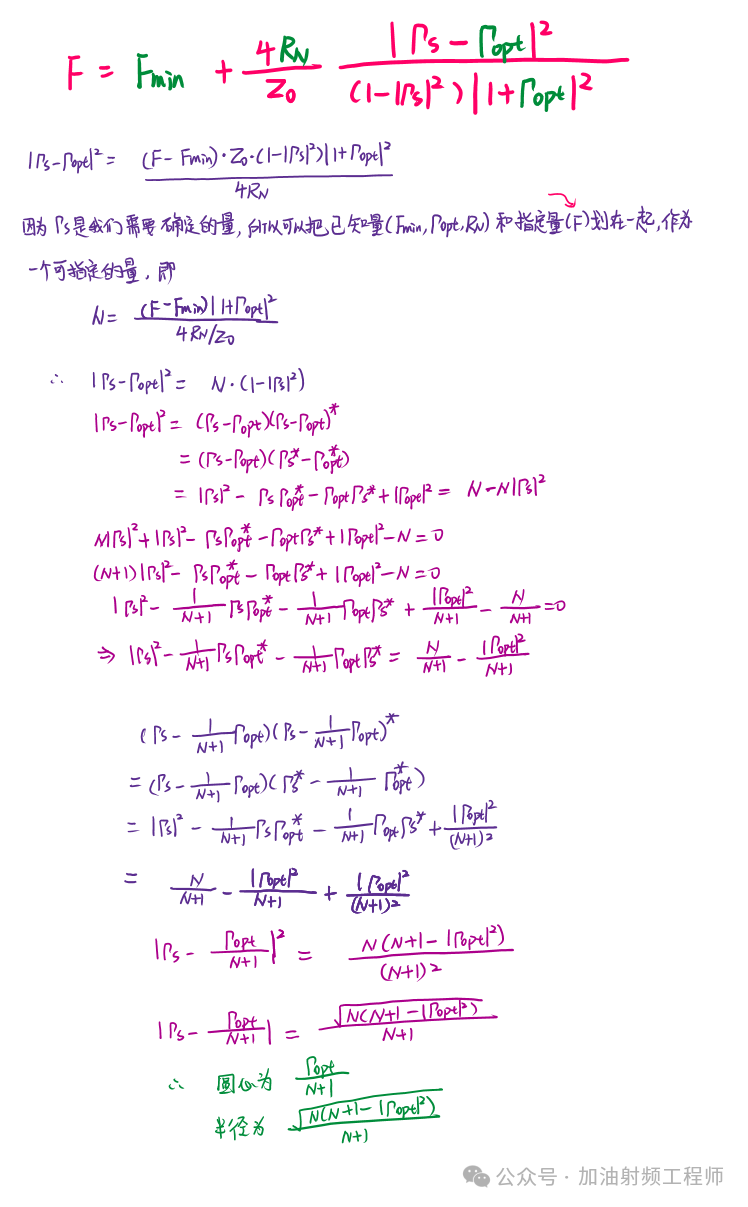 F = Fmin + 4RN/Z0 |Γs-Γopt|²/((1-|Γs|²)|1+Γopt|²)
|Γs-Γopt|² = (F-Fmin)·Z0·(1-|Γs|²)|1+Γopt|²/4RN
因为Γs是我们需要确定的量,所以可以把已知量(Fmin,Γopt,RN)和指定量(F)划在一起,作为
一个可指定的量,即
N = (F-Fmin)|1+Γopt|²/(4RN/Z0)
∴ |Γs-Γopt|² = N·(1-|Γs|²)
|Γs-Γopt|² = (Γs-Γopt)(Γs-Γopt)*
= (Γs-Γopt)(Γs*-Γopt*)
= |Γs|² - ΓsΓopt* - ΓoptΓs* + |Γopt|² = N-N|Γs|²
N|Γs|²+|Γs|² - ΓsΓopt* - ΓoptΓs* + |Γopt|² - N = 0
(N+1)|Γs|² - ΓsΓopt* - ΓoptΓs* + |Γopt|² - N = 0
|Γs|² - 1/(N+1) ΓsΓopt* - 1/(N+1) ΓoptΓs* + |Γopt|²/(N+1) - N/(N+1) = 0
⇒ |Γs|² - 1/(N+1) ΓsΓopt* - 1/(N+1) ΓoptΓs* = N/(N+1) - |Γopt|²/(N+1)
(Γs - 1/(N+1) Γopt)(Γs - 1/(N+1) Γopt)*
= (Γs - 1/(N+1) Γopt)(Γs* - 1/(N+1) Γopt*)
= |Γs|² - 1/(N+1) ΓsΓopt* - 1/(N+1) ΓoptΓs* + |Γopt|²/(N+1)²
= N/(N+1) - |Γopt|²/(N+1) + |Γopt|²/(N+1)²
|Γs - Γopt/(N+1)|² = N(N+1-|Γopt|²)/(N+1)²
|Γs - Γopt/(N+1)| = √(N(N+1-|Γopt|²))/(N+1)
∴ 圆心为 Γopt/(N+1)
半径为 √(N(N+1-|Γopt|²))/(N+1)
公众号·加油射频工程师